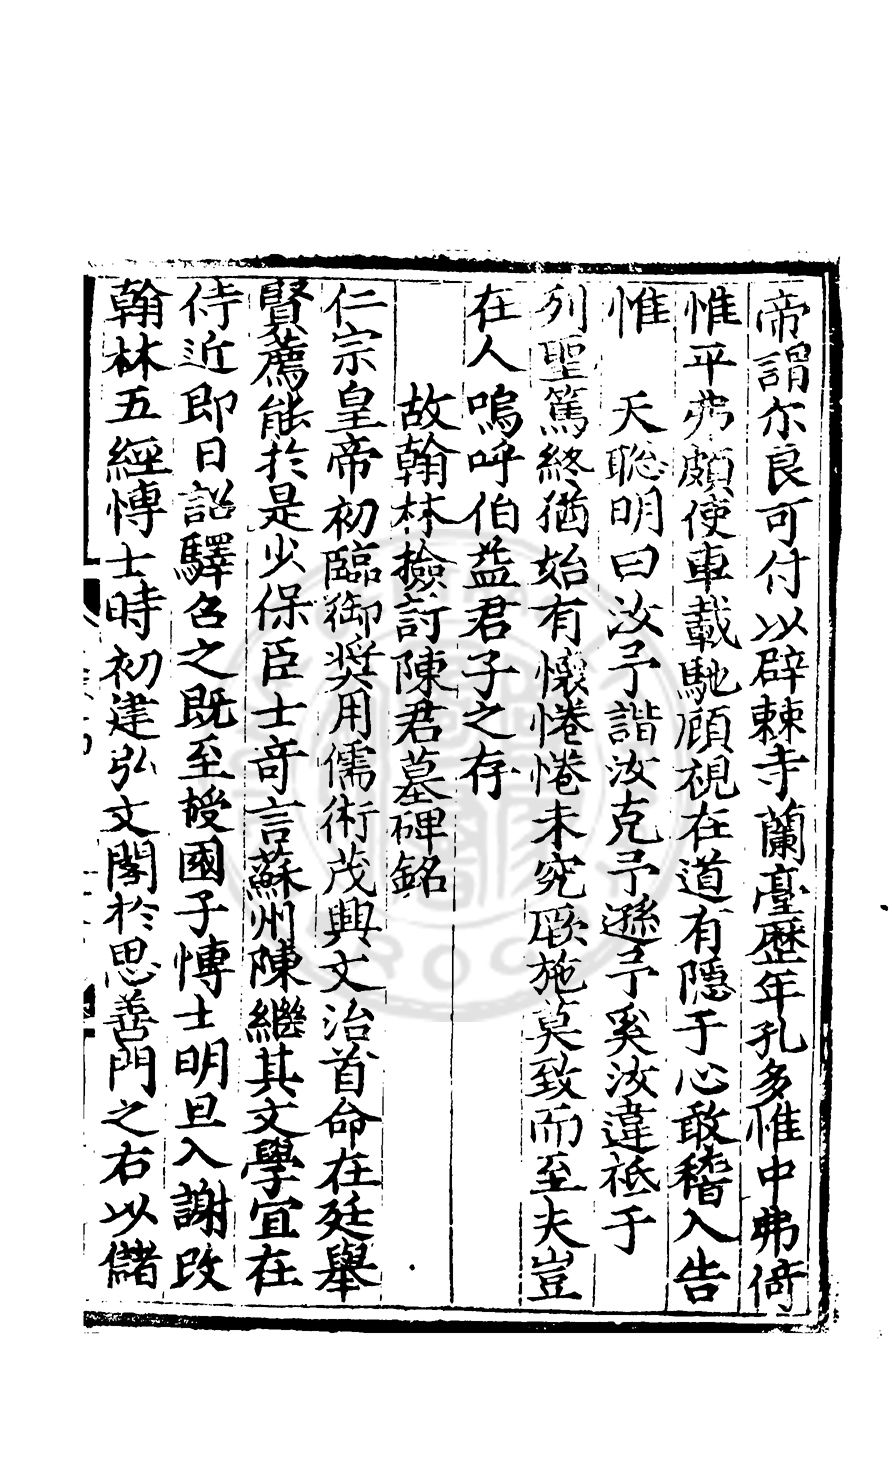 帝謂尓良可付以辟棘寺蘭臺歷年孔多惟中弗倚
惟平弗頗使車載馳顧視在道有隱于心敢稽入告
惟　天聰明曰汝予諧汝克予遜予奚汝違祗于
列聖篤終猶始有懷惓惓未究厥施莫致而至夫豈
在人嗚呼伯益君子之存
故翰林檢討陳君墓碑銘
仁宗皇帝初臨御奨用儒術茂興文治首命在廷舉
賢薦能於是少保臣士竒言蘇州陳繼其文學宜在
侍近即日詔驛召之既至授國子博士明旦入謝改
翰林五經博士時初建弘文閣於思善門之右以儲